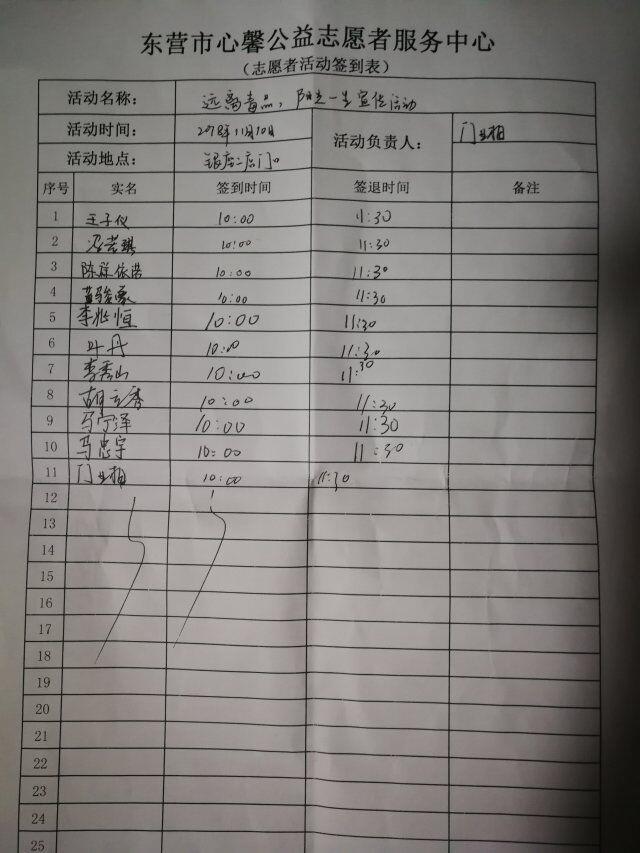 东营市心馨公益志愿者服务中心
（志愿者活动签到表）
活动名称： 远离毒品，阳光一生宣传活动
活动时间： 2018年11月10日 活动负责人：
活动地点： 银座二店门口
序号 实名 签到时间 签退时间 备注
1 王子仪 10:00 11:30
2 10:00 11:30
3 陈 依诺 10:00 11:30
4 10:00 11:30
5 李兆恒 10:00 11:30
6 叶丹 10:00 11:30
7 李秀山 10:00 11:30
8 胡云香 10:00 11:30
9 马宁泽 10:00 11:30
10 马忠宇 10:00 11:30
11 10:00 11:30
12
13
14
15
16
17
18
19
20
21
22
23
24
25